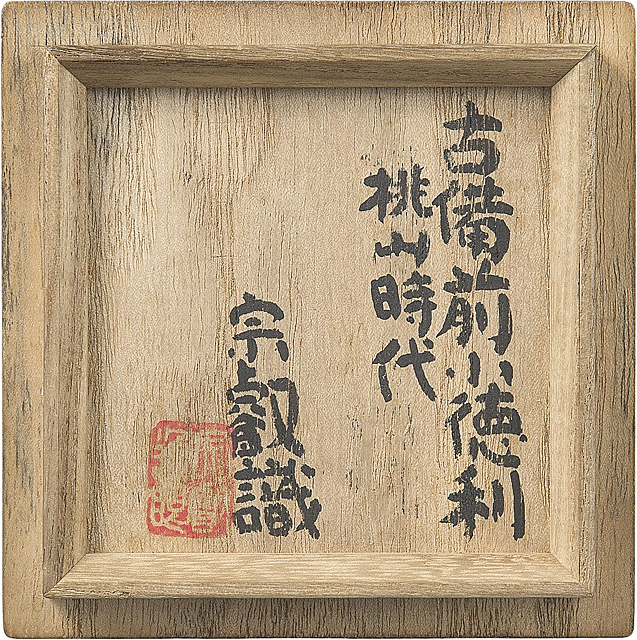 古備前小徳利
桃山時代
宗叡識